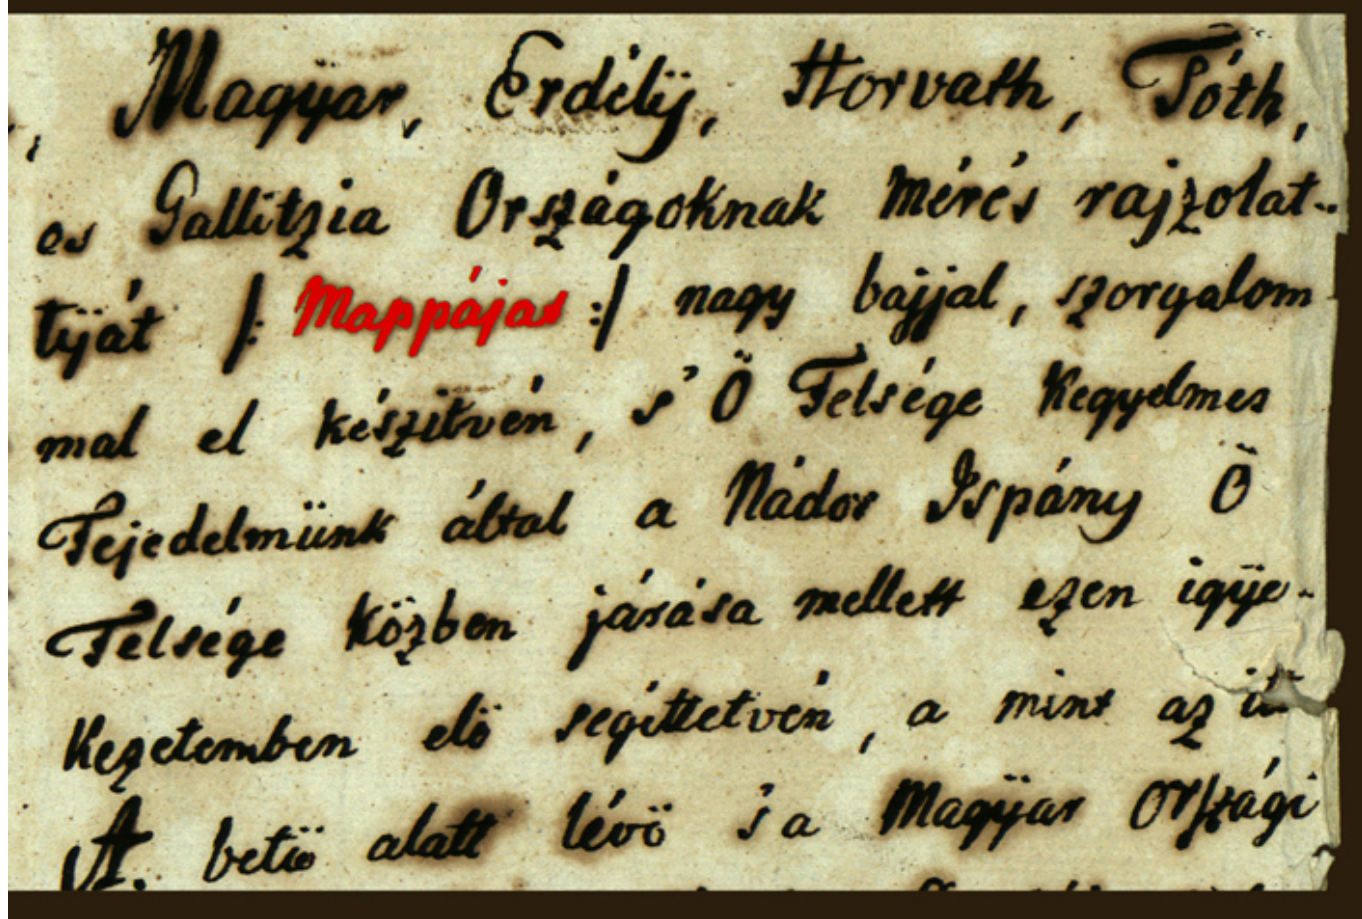 Magÿar, Erdélÿ, Horvath, Tóth,
es Gallitzia Országoknak mérés rajzolat-
tÿát |: Mappáját :| nagy bajjal, szorgalom
mal el készitvén, s' Ö Felsége Kegyelmes
Fejedelmünk által a Nádor Ispány Ö
Felsége közben járása mellett ezen igÿe-
kezetemben elö segéttetvén, a mint az
A. betü alatt lévö 's a Magÿar Országi